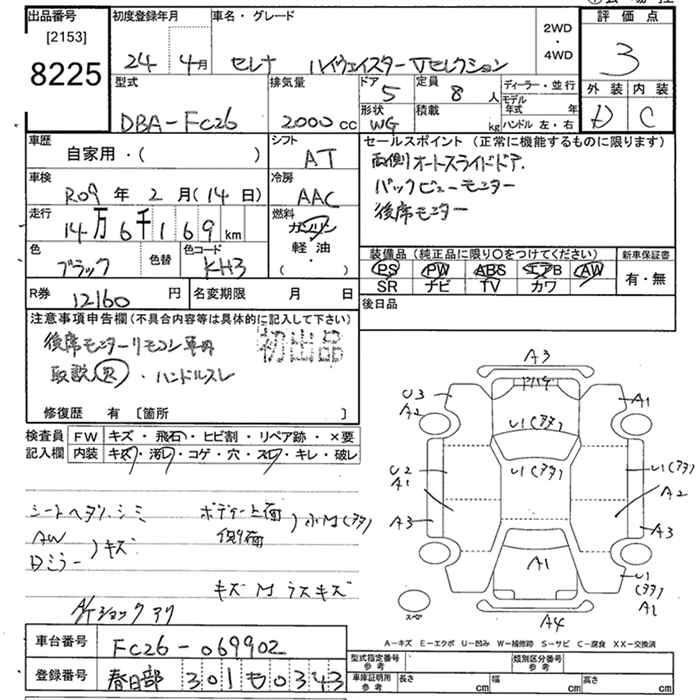 出品番号
[2153]
8225
初度登録年月
24年 4月
車名・グレード
セレナ ハイウェイスター Vセレクション
2WD
・
4WD
評価点
3
外装 内装
D C
型式
DBA-FC26
排気量
2000 cc
ドア
5
定員
8 人
形状
WG
積載
kg
ディーラー・並行
モデル年式 年
ハンドル 左・右
車歴
自家用・( )
シフト
AT
車検
R09年 2月(14日)
冷房
AAC
走行
14万6千169km
燃料
ガソリン
軽油
・( )
色
ブラック
色替
色コード
KH3
R券
12160円
名変期限 月 日
セールスポイント(正常に機能するものに限ります)
両側オートスライドドア.
バックビューモニター
後席モニター
装備品(純正品に限り〇をつけてください)
PS PW ABS エアB AW
SR ナビ TV カワ
新車保証書
有・無
後日品
注意事項申告欄(不具合内容等は具体的に記入して下さい)
後席モニターリモコン
初出品
取説・ハンドルスレ
修復歴 有 [箇所 ]
検査員
記入欄
FW キズ・飛石・ヒビ割・リペア跡・×要
内装 キズ・汚レ・コゲ・穴・スレ・キレ・破レ
シートヘタリ.シミ
AW
Dミラー
)キズ
ボディー上面
側面
)小M(アタ)
キズM ラスキズ
A/Tショックアリ
A3
U3
A2
A1
U1(アタ)
U1(アタ)
U2
A1
U1(アタ)
A2
A3
A3
A1
U1
(アタ)
A1
A4
スペア
A-キズ E-エクボ U-凹み W-補修跡 S-サビ C-腐食 XX-交換済
車台番号
FC26-069902
登録番号
春日部 301 も 0343
型式指定番号
参考
類別区分番号
参考
車庫証明用
参考
長さ cm
幅 cm
高さ cm